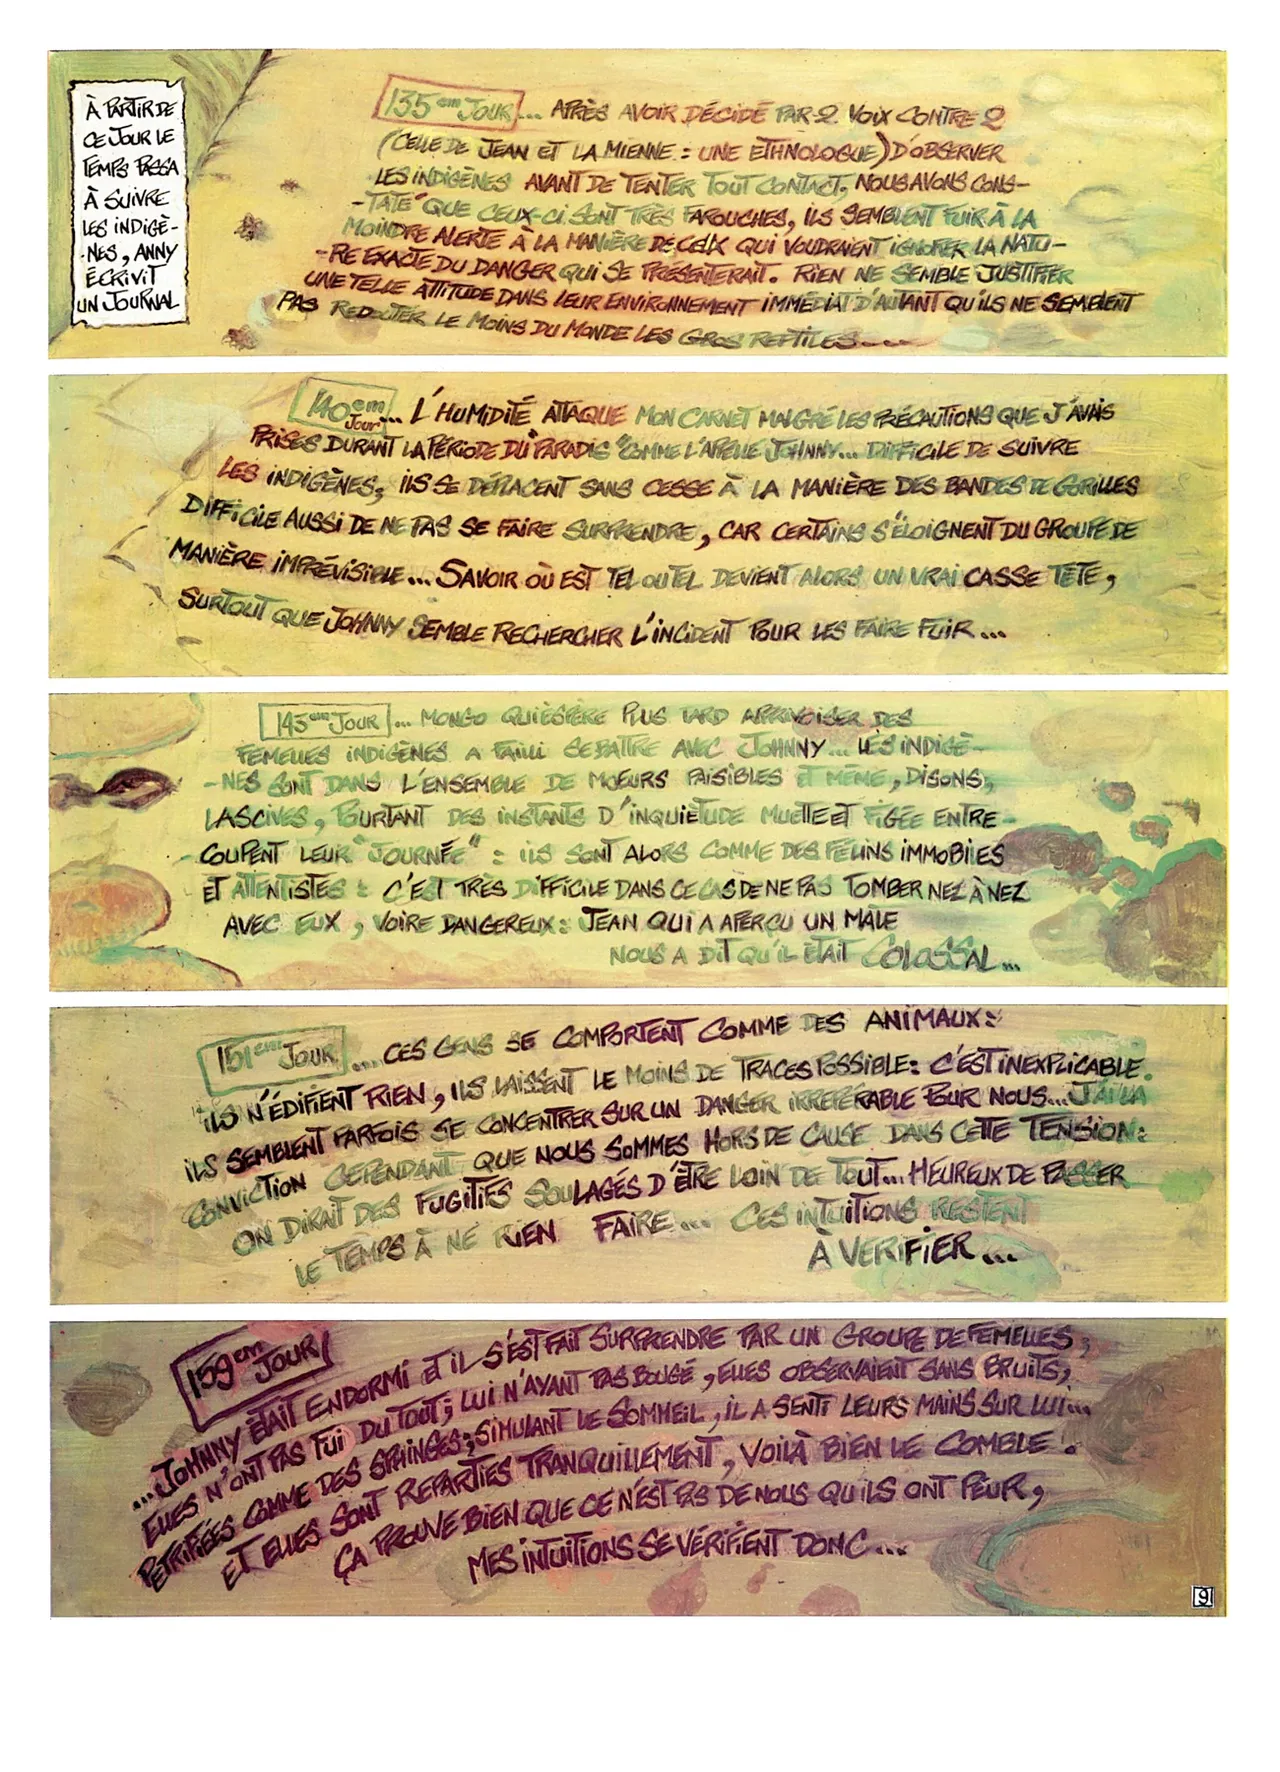 À PARTIR DE
CE JOUR LE
TEMPS PASSA
À SUIVRE
LES INDIGÈ-
-NES, ANNY
ÉCRIVIT
UN JOURNAL
135em JOUR... APRÈS AVOIR DÉCIDÉ PAR 2 VOIX CONTRE 2
(CELLE DE JEAN ET LA MIENNE : UNE ETHNOLOGUE) D'OBSERVER
LES INDIGÈNES AVANT DE TENTER TOUT CONTACT, NOUS AVONS CONS-
-TATÉ QUE CEUX-CI SONT TRÈS FAROUCHES, ILS SEMBLENT FUIR À LA
MOINDRE ALERTE À LA MANIÈRE DE CEUX QUI VOUDRAIENT IGNORER LA NATU-
-RE EXACTE DU DANGER QUI SE PRÉSENTERAIT. RIEN NE SEMBLE JUSTIFIER
UNE TELLE ATTITUDE DANS LEUR ENVIRONNEMENT IMMÉDIAT D'AUTANT QU'ILS NE SEMBLENT
PAS REDOUTER LE MOINS DU MONDE LES GROS REPTILES....
140em JOUR... L'HUMIDITÉ ATTAQUE MON CARNET MALGRÉ LES PRÉCAUTIONS QUE J'AVAIS
PRISES DURANT LA PÉRIODE DU "PARADIS" COMME L'APPELLE JOHNNY... DIFFICILE DE SUIVRE
LES INDIGÈNES, ILS SE DÉPLACENT SANS CESSE À LA MANIÈRE DES BANDES DE GORILLES
DIFFICILE AUSSI DE NE PAS SE FAIRE SURPRENDRE, CAR CERTAINS S'ÉLOIGNENT DU GROUPE DE
MANIÈRE IMPRÉVISIBLE... SAVOIR OÙ EST TEL OU TEL DEVIENT ALORS UN VRAI CASSE TÊTE,
SURTOUT QUE JOHNNY SEMBLE RECHERCHER L'INCIDENT POUR LES FAIRE FUIR...
143em JOUR... MONGO QUI ÈSPÈRE PLUS TARD APPRIVOISER DES
FEMELLES INDIGÈNES A FAILLI SE BATTRE AVEC JOHNNY... LES INDIGÈ-
-NES SONT DANS L'ENSEMBLE DE MOEURS PAISIBLES ET MÊME, DISONS,
LASCIVES, POURTANT DES INSTANTS D'INQUIÉTUDE MUETTE ET FIGÉE ENTRE-
-COUPENT LEUR "JOURNÉE" : ILS SONT ALORS COMME DES FÉLINS IMMOBILES
ET ATTENTISTES : C'EST TRÈS DIFFICILE DANS CE CAS DE NE PAS TOMBER NEZ À NEZ
AVEC EUX, VOIRE DANGEREUX : JEAN QUI A APERÇU UN MÂLE
NOUS A DIT QU'IL ÉTAIT COLOSSAL...
151em JOUR.... CES GENS SE COMPORTENT COMME DES ANIMAUX :
ILS N'ÉDIFIENT RIEN, ILS LAISSENT LE MOINS DE TRACES POSSIBLE : C'EST INEXPLICABLE.
ILS SEMBLENT PARFOIS SE CONCENTRER SUR UN DANGER IRRÉPÉRABLE POUR NOUS... J'AI LA
CONVICTION CEPENDANT QUE NOUS SOMMES HORS DE CAUSE DANS CETTE TENSION :
ON DIRAIT DES FUGITIFS SOULAGÉS D'ÊTRE LOIN DE TOUT... HEUREUX DE PASSER
LE TEMPS À NE RIEN FAIRE... CES INTUITIONS RESTENT
À VERIFIER...
159em JOUR
...JOHNNY ÉTAIT ENDORMI ET IL S'EST FAIT SURPRENDRE PAR UN GROUPE DE FEMELLES ;
ELLES N'ONT PAS FUI DU TOUT ; LUI N'AYANT PAS BOUGÉ, ELLES OBSERVAIENT SANS BRUITS,
PÉTRIFIÉES COMME DES SPHINGES ; SIMULANT LE SOMMEIL, IL A SENTI LEURS MAINS SUR LUI...
ET ELLES SONT REPARTIES TRANQUILLEMENT, VOILÀ BIEN LE COMBLE !
ÇA PROUVE BIEN QUE CE N'EST PAS DE NOUS QU'ILS ONT PEUR,
MES INTUITIONS SE VÉRIFIENT DONC...
9